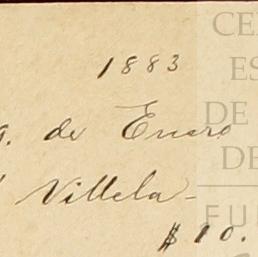 1883
g. de Enero
Villela -
$10.
CE
ES
DE
DE
FU